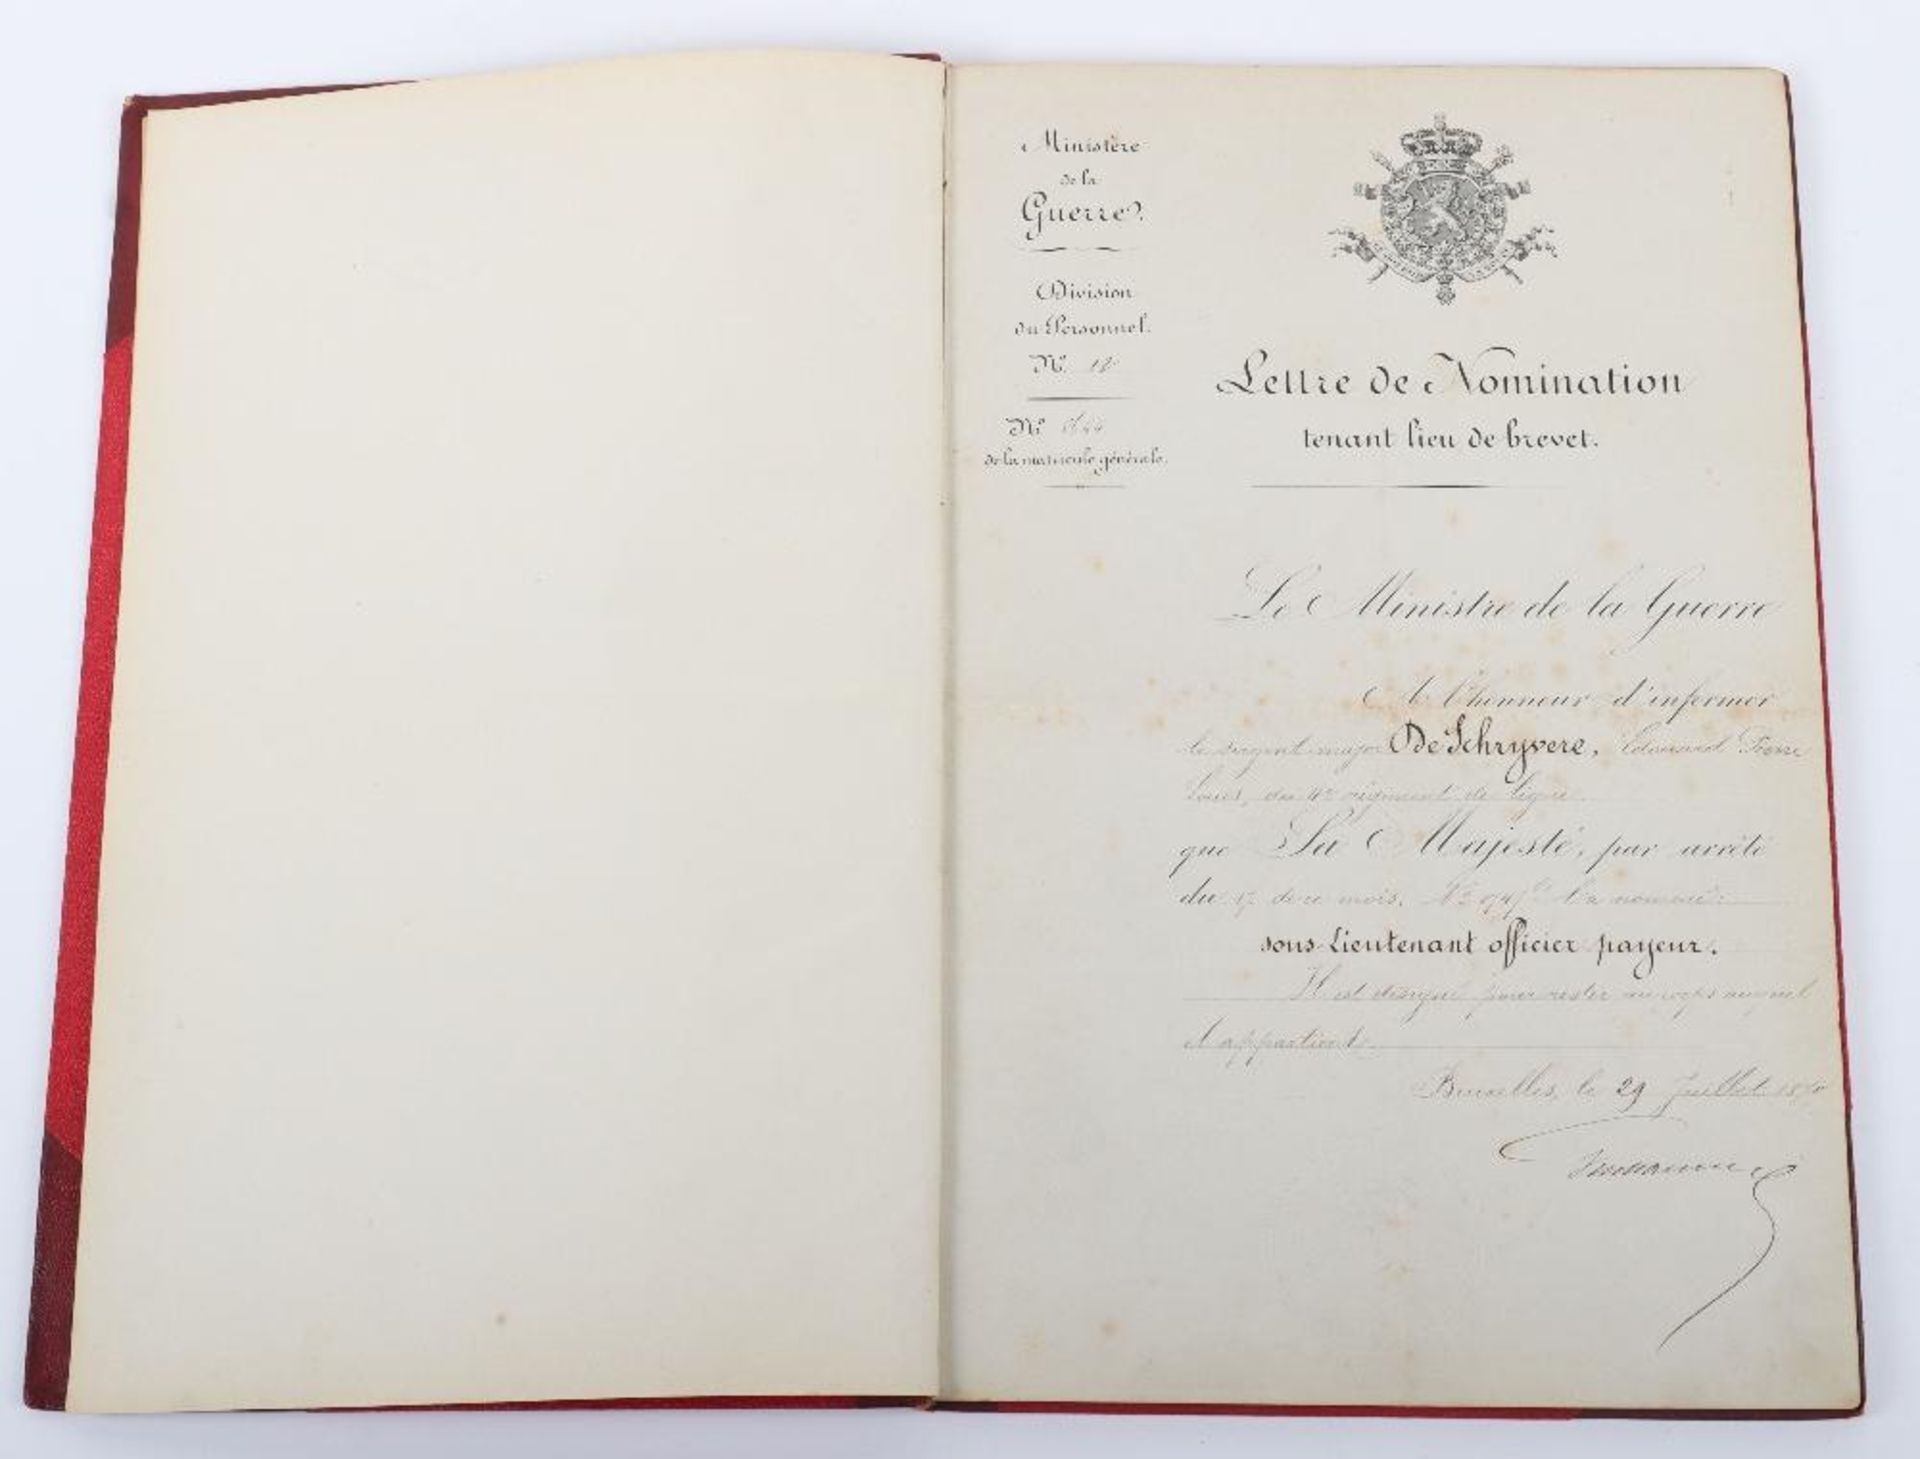 Ministère
de la
Guerre.
Division
du Personnel.
Nº 12
Nº
de la matricule générale.
Lettre de Nomination
tenant lieu de brevet.
Le Ministre de la Guerre
A l'honneur d'informer
le sergent major De Schryvere, Edouard Pierre
Louis, du 4e régiment de ligne.
que Sa Majesté, par arrêté
du de ce mois, Nº l'a nommé:
sous-Lieutenant officier payeur.
Il est désigné pour rester au corps auquel
il appartient.
Bruxelles, le 29 Juillet